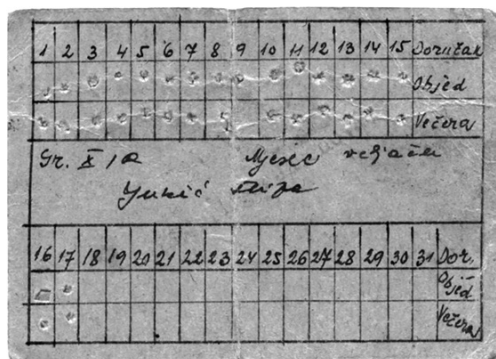 1 2 3 4 5 6 7 8 9 10 11 12 13 14 15 Doručak
Objed
Večera
Gr. X / a Mjesec veljača
Jukić Stipe
16 17 18 19 20 21 22 23 24 25 26 27 28 29 30 31 Dor.
Objed
Večera